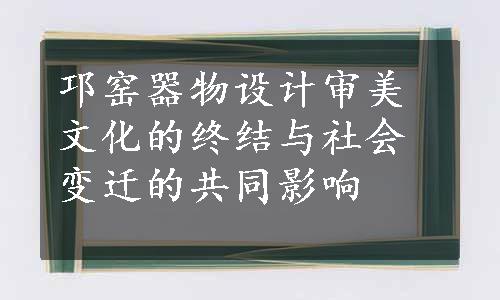 邛窑器物设计审美
文化的终结与社会
变迁的共同影响